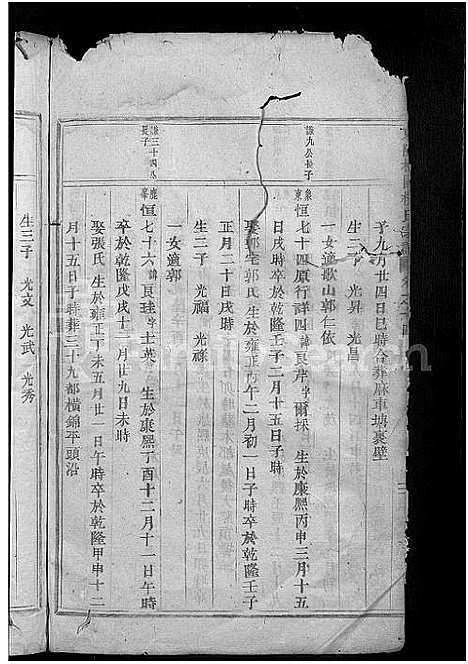 子九月廿四日巳時合葬麻車塘裏壁
生二子 光昇 光昌
一女適歌山郭仁依
謙九公長子
象東 恆七十四原行詳四諱良岸字爾採 生於康熙丙申三月十五
日戌時卒於乾隆壬子二月十五日子時
娶郭宅郭氏 生於雍正丙午二月初一日子時卒於乾隆壬子
正月二十日戌時
生二子 光福 光祿
一女適郭
謙三十四公長子
鹿峯 恆七十六諱良珪字士英 生於康熙丁酉十二月十一日午時
卒於乾隆戊戌十二月廿九日未時
娶張氏 生於雍正丁未五月廿一日午時卒於乾隆甲申十二
月十五日子時葬三十九都橫錦平頭沿
生三子 光文 光武 光秀